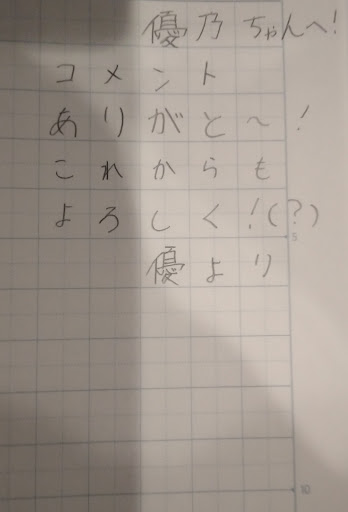 優乃ちゃんへ!
コメント
ありがと〜!
これからも
よろしく!(?)
5
優より
10